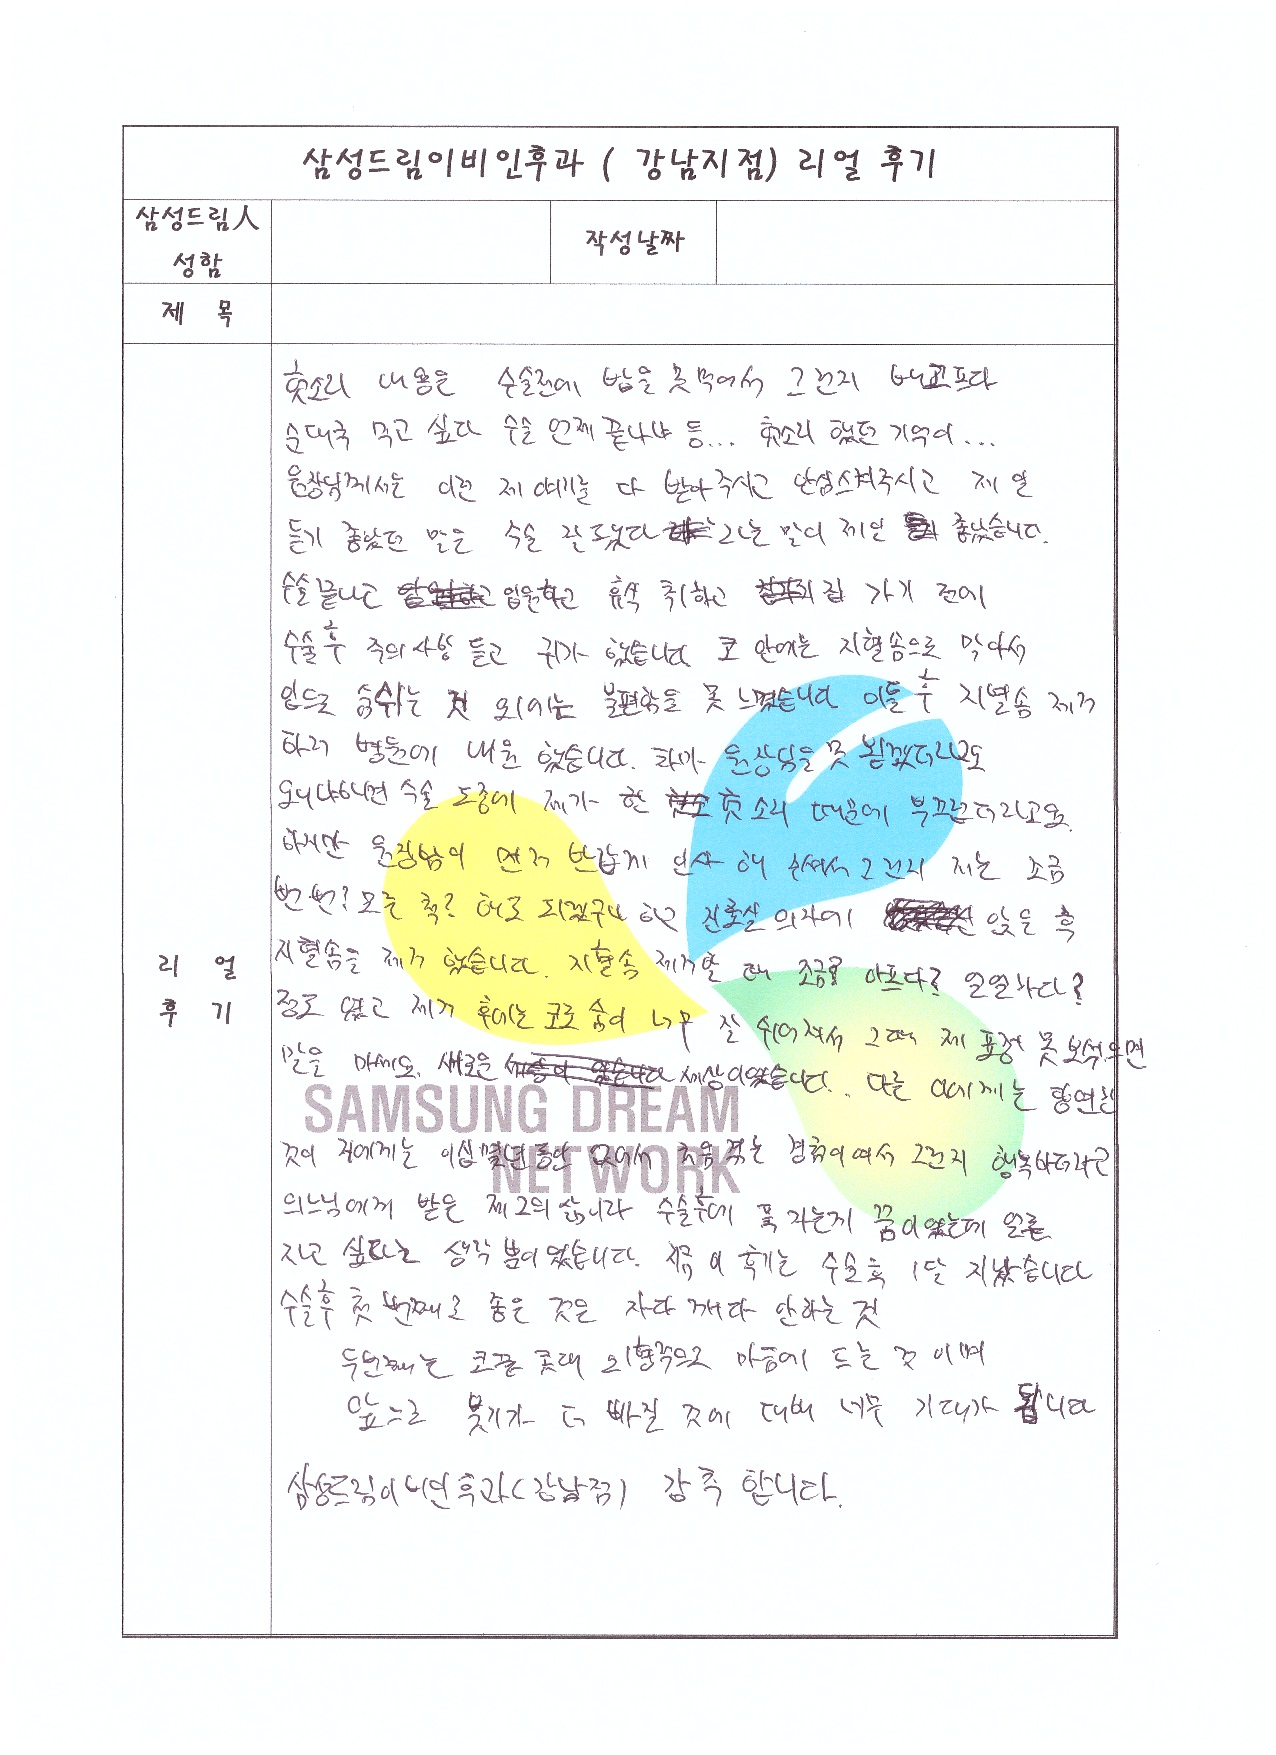 삼성드림이비인후과 ( 강남지점) 리얼 후기
삼성드림人
성함
작성날짜
제 목
리 얼
후 기
헛소리 내용은 수술전에 밥을 못먹어서 그런지 배고프다
순대국 먹고 싶다 수술 언제 끝나냐 등... 헛소리 했던 기억이...
원장님께서는 이런 제 얘기를 다 받아주시고 안심시켜주시고 제일
듣기 좋았던 말은 수술 잘 됐다 라는 말이 제일 좋았습니다.
수술끝나고 입원하고 휴식 취하고 집 가기 전에
수술후 주의사항 듣고 귀가 했습니다 코 안에는 지혈솜으로 막아서
입으로 숨쉬는 것 외에는 불편함을 못 느꼈습니다 이틀 후 지혈솜 제거
하러 병원에 내원 했습니다. 차마 원장님을 못 뵙겠더라고요
왜냐하면 수술 도중에 제가 한 헛소리 때문에 부끄럽더라고요.
하지만 원장님이 먼저 반갑게 인사 해 주셔서 그런지 저는 조금
뻔뻔? 모른 척? 해도 되겠구나 하고 진료실 의자에 앉은 후
지혈솜을 제거 했습니다. 지혈솜 제거할 때 조금 아프다? 얼얼하다?
정도 였고 제거 후에는 코로 숨이 너무 잘 쉬어져서 그때 제 표정 못보셨으면
말을 마세요. 새로운 세상이었습니다.. 다른 이에게는 당연한
것이 저에게는 이십몇년동안 없어서 처음 겪는 경험이여서 그런지 행복하더라고
의느님에게 받은 제2의 삶이라 수술후에 푹 자는게 꿈이었는데 얼른
자고 싶다는 생각 뿐이었습니다. 지금 이 후기는 수술후 1달 지났습니다
수술후 첫 번째로 좋은 것은 자다 깨다 안하는 것
두번째는 코끝 콧대 외형적으로 마음에 드는 것 이며
앞으로 붓기가 더 빠질 것에 대해 너무 기대가 됩니다
삼성드림이비인후과(강남점) 강추 합니다.
SAMSUNG DREAM
NETWORK